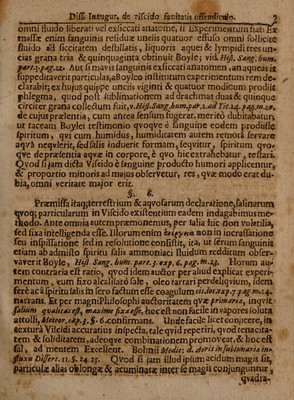 Diss. Inaugur. de viscido sanitatis offendiculo.
omni fluido liberari vel exsiccati anatome, it Experimentum fiat: Ex
massæ enim sanguinis residuæ unciis quatuor effuso omni scilicet
fluido ad siccitatem destillatis, liquoris aquei & lympidi tres un-
cias grana tria & quinquaginta obtinuit Boyle; vid. Hist. Sang. hum.
part. 2. pag. 22. Aut is mavis sanguinis exsiccati anatomen, an aquea it
suppeditaverit particulas, a Boyleo institutum experimentum rem de-
clarabit, ex hujus quippe unciis viginti & quatuor modicum prodiit
phlegma, quod post sublimationem ad drachmas duas & quinque
circiter grana collectum fuit, v. Hist. Sang. hum. par. 2. ad Tit. 24. pag. 20.
de cujus præsentia, cum antea sensum fugerat. merito dubitabatur
ut taceam Boylei testimonio quoqve è sanguine eodem prodiisse
spiritum, qvi cum humidus, humiditatem autem remota servare
aqvâ neqvierit, sed salis induerit formam, seqvitur, spiritum qvo-
qve de præsentia aqvæ in corpore, è qvo hic extrahebatur, testari.
Qvod si jam dicta Viscido è sanguine producto humori applicentur,
& proportio minoris ad majus observetur, res, qvæ modo erat du-
bia, omni veritate major erit.
§. 6.
Præmissa itaq; terrestrium & aqvosarum declaratione, salinarum
qvoq; particularum in Viscido exsistentium eadem indagabimus me-
thodo. Ante omnia autem præmonemus, per salia hic non volatilia,
sed fixa intelligenda esse. Illorum enim non in incrassatione
seu inspissatione sed in resolutione consistit, ita, ut serum sanguinis
etiam ab admisto spiritu salis ammoniaci fluidum redditum obser-
vaverit Boyle, Hist. Sang. hum. part. 1. cap. 6. pag. m. 23. Horum au-
tem contraria est ratio, quod idem auctor per aliud explicat experi-
mentum, cum fixo alcalisato sale, oleo tartari per deliqvium, idem
ferè ac à spiritu salis in sero factum esse coagulum
narrans. Et per magni Philosophi auctoritatem qvæ primaria, inqvit
salium qualitas est, maxime fixa esse, hoc est non facile in vapores soluta
attolli, Meteor. cap. 3. §. 6. confirmans. Unde facile licet conjicere, in
textura Viscidi accuratius inspecta, tale qvid reperiri, quod tenacita-
tem & soliditatem, adeoque combinationem promoveat, & hoc est
sal, ad mentem Excellent. Bohnii Medit. d. aëris in sublunaria in-
fluxu Dissert. 11. §. 24. 25. Qvod si jam illud ipsum acidum magis sit,
particulæ alias oblongæ & acuminatæ inter se magis conjunguntur,
quadra-